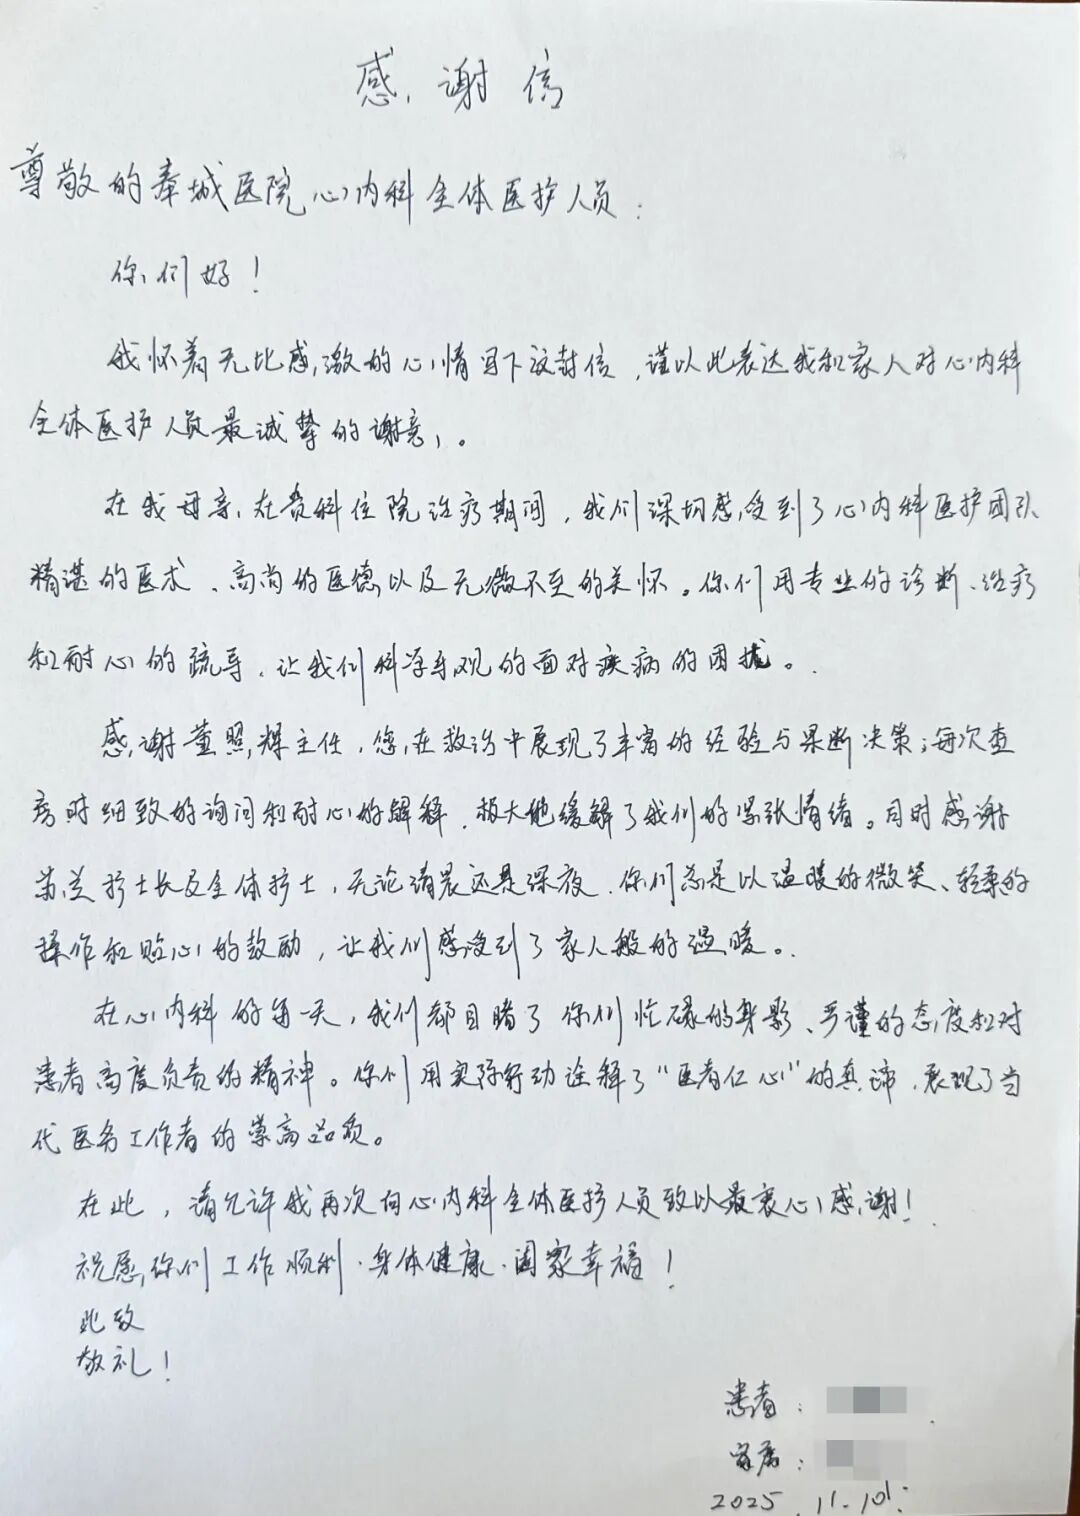 感谢信
尊敬的奉城医院心内科全体医护人员：
你们好！
我怀着无比感激的心情写下这封信，谨以此表达我和家人对心内科
全体医护人员最诚挚的谢意。
在我母亲在贵科住院治疗期间，我们深切感受到了心内科医护团队
精湛的医术、高尚的医德以及无微不至的关怀。你们用专业的诊断、治疗
和耐心的疏导，让我们科学乐观的面对疾病的困扰。
感谢董照辉主任，您在救治中展现了丰富的经验与果断决策；每次查
房时细致的询问和耐心的解释，极大地缓解了我们的紧张情绪。同时感谢
兰护士长及全体护士，无论清晨还是深夜，你们总是以温暖的微笑、轻柔的
操作和贴心的鼓励，让我们感受到了家人般的温暖。
在心内科的每一天，我们都目睹了你们忙碌的身影、严谨的态度和对
患者高度负责的精神。你们用实际行动诠释了“医者仁心”的真谛，展现了当
代医务工作者的崇高品质。
在此，请允许我再次向心内科全体医护人员致以最衷心感谢！
祝愿你们工作顺利，身体健康，阖家幸福！
此致
敬礼！
患者：
家属：
2025.11.10